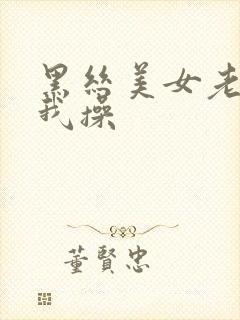 黑丝美女老
我操
董賢忠